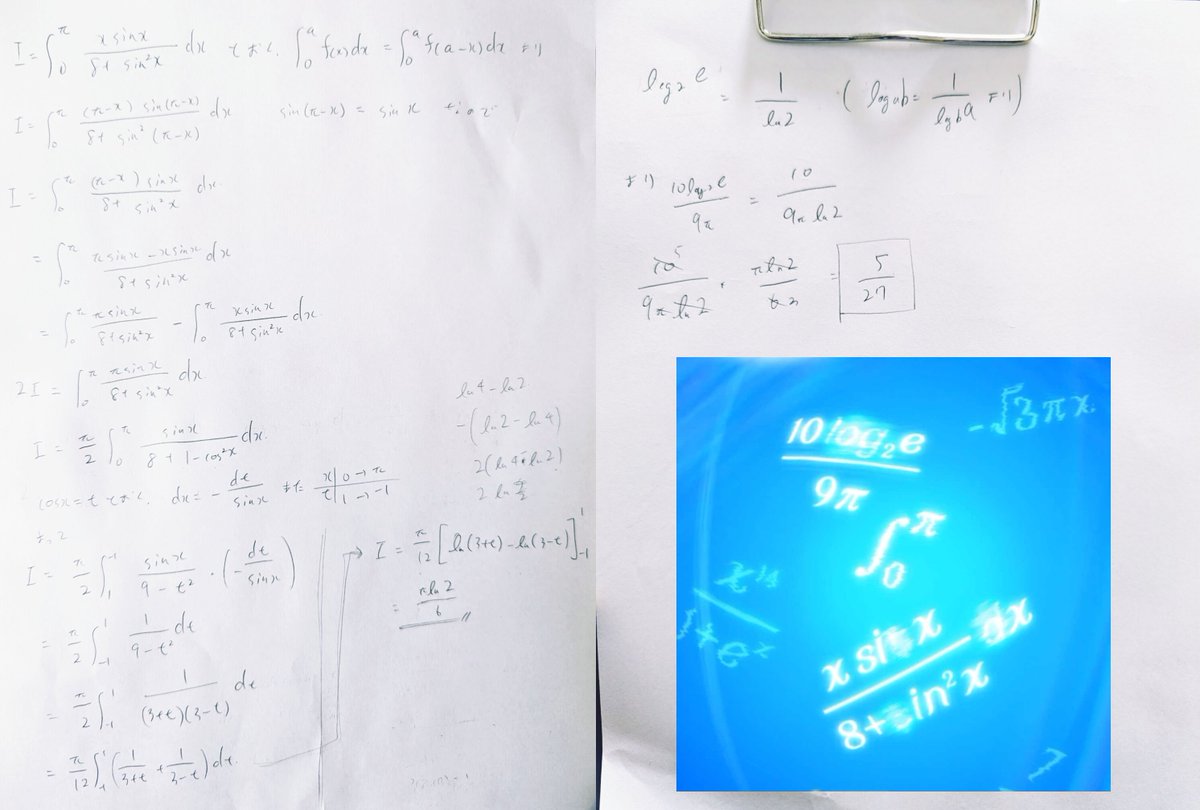 I = ∫₀^π x sinx / (8 + sin²x) dx とおく. ∫₀^a f(x)dx = ∫₀^a f(a-x)dx より
I = ∫₀^π (π-x) sin(π-x) / (8 + sin²(π-x)) dx sin(π-x) = sin x なので
I = ∫₀^π (π-x) sinx / (8 + sin²x) dx.
= ∫₀^π (π sinx - x sinx) / (8 + sin²x) dx
= ∫₀^π π sinx / (8 + sin²x) - ∫₀^π x sinx / (8 + sin²x) dx.
2I = ∫₀^π π sinx / (8 + sin²x) dx
I = π/2 ∫₀^π sinx / (8 + 1 - cos²x) dx.
cosx = t とおく. dx = - dt/sinx また x | 0 → π
t | 1 → -1
よって
I = π/2 ∫₁^-1 sinx / (9 - t²) · (- dt/sinx)
= π/2 ∫₋₁^1 1 / (9 - t²) dt
= π/2 ∫₋₁^1 1 / (3+t)(3-t) dt
= π/12 ∫₋₁^1 (1/(3+t) + 1/(3-t)) dt.
ln4 - ln2
-(ln2 - ln4)
2(ln4 - ln2)
2 ln 4/2
→ I = π/12 [ln(3+t) - ln(3-t)]₋₁^1
= π ln2 / 6
log₂ e = 1 / ln2 ( log_a b = 1 / log_b a より)
より 10 log₂ e / 9π = 10 / 9π ln2
10 5 / 9π ln2 · π ln2 / 6 3 = 5/27
10 log₂ e / 9π
∫₀^π
x sin x / (8 + sin² x) dx
-√3πx